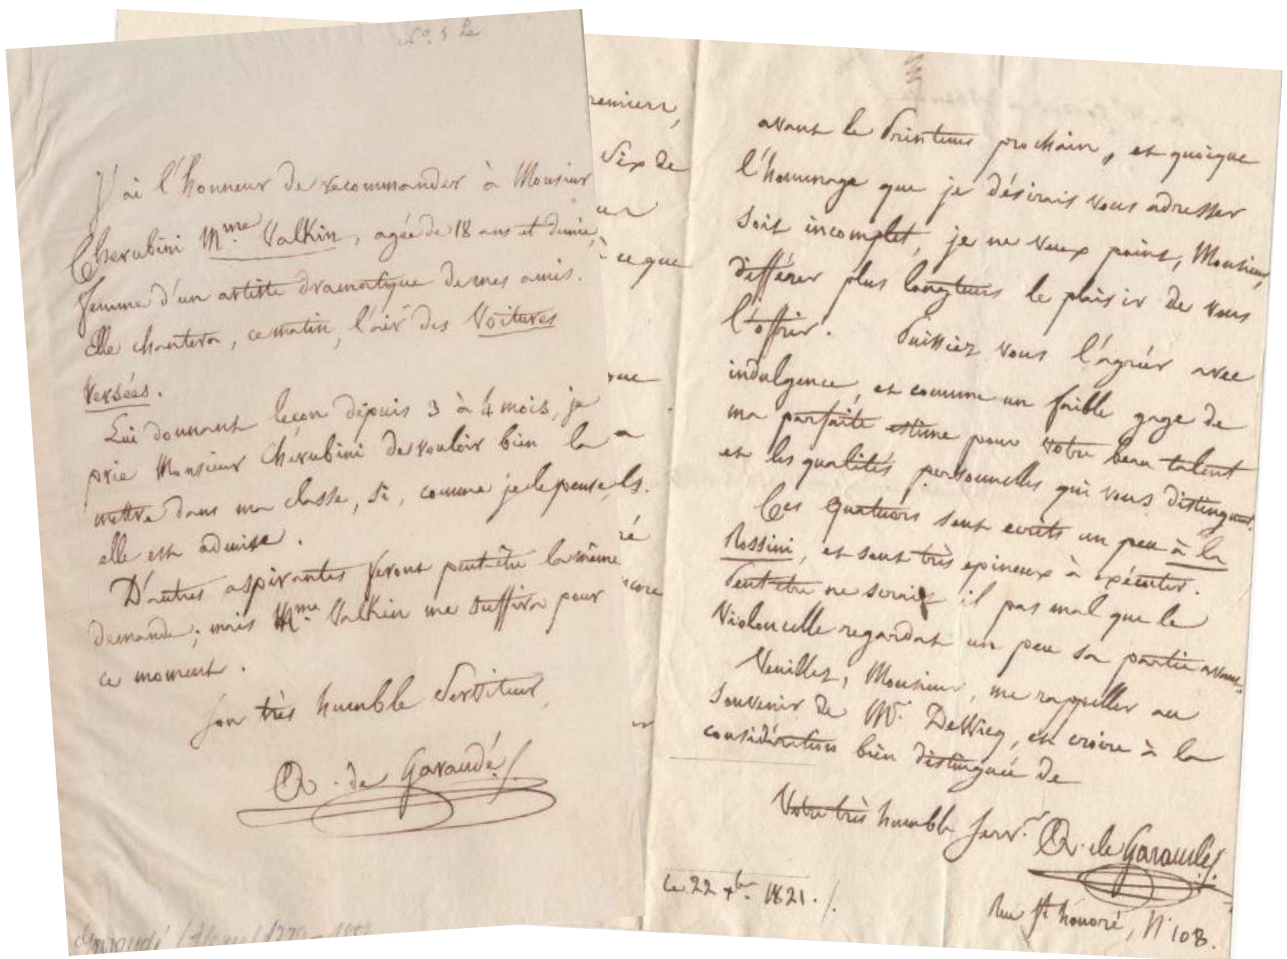 J'ai l'honneur de recommander à Monsieur
Cherubini Mme Valkin, agée de 18 ans et demie,
femme d'un artiste dramatique de mes amis.
Elle chantera, ce matin, l'air des Voitures
versées.
Lui donnant leçon depuis 3 à 4 mois, je
prie Monsieur Cherubini de vouloir bien la
mettre dans ma classe, si, comme je le pense,
elle est admise.
D'autres aspirantes feront peut-être la même
demande; mais Mme Valkin me suffira pour
ce moment.
Son très humble Serviteur,
A. de Garaudé
Garaudé
premiers,
Six de
ce que
encore
avant le Printems prochain, et quoique
l'hommage que je désirais vous adresser
soit incomplet, je ne veux point, Monsieur,
différer plus longtems le plaisir de vous
l'offrir. Puissiez vous l'agréer avec
indulgence, et comme un faible gage de
ma parfaite estime pour votre beau talent
et les qualités personnelles qui vous distinguent.
Ces Quatuors sont écrits un peu à la
Rossini, et sont très epineux à exécuter.
Peut-être ne serait il pas mal que le
Violoncelle regardat un peu sa partie avant.
Veuillez, Monsieur, me rappeller au
souvenir de Mr. DeWicq, et croire à la
considération bien distinguée de
Votre très humble Servr. A. de Garaudé
Le 22 xbr. 1821.
Rue St honoré, N° 108.